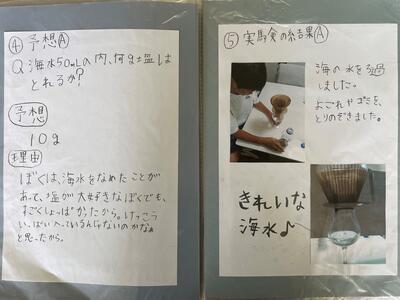 ④予想Ⓐ
Q 海水50mLの内、何g塩は
とれるか?
予想
10g
理由
ぼくは、海水をなめたことが
あって、塩が大好きなぼくでも、
すごくしょっぱかったから。けっこう
いっぱい入っているんじゃないのかなぁ
と思ったから。
⑤実験の結果Ⓐ
海の水をろ過
しました。
よごれやゴミを、
とりのぞきました。
きれいな
海水♪